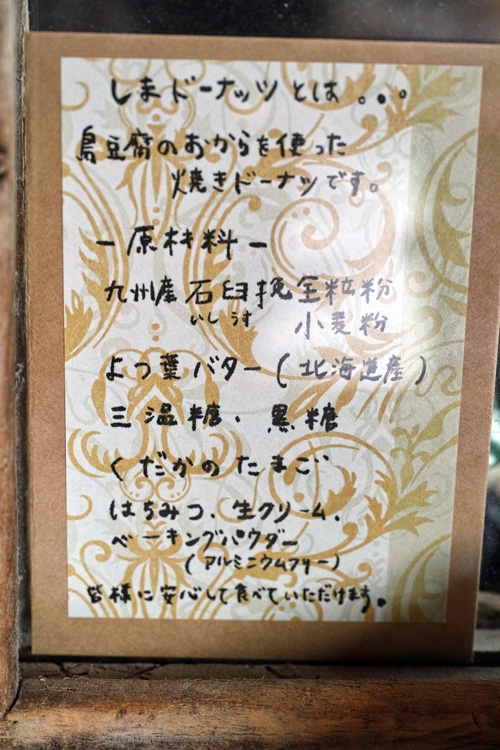 しまドーナッツとは。。。
島豆腐のおからを使った
焼きドーナツです。
ー原材料ー
九州産 石臼挽全粒粉
いし うす
小麦粉
よつ葉バター(北海道産)
三温糖、黒糖
くだかのたまご
はちみつ、生クリーム、
ベーキングパウダー
(アルミニウムフリー)
皆様に安心して食べていただけます。